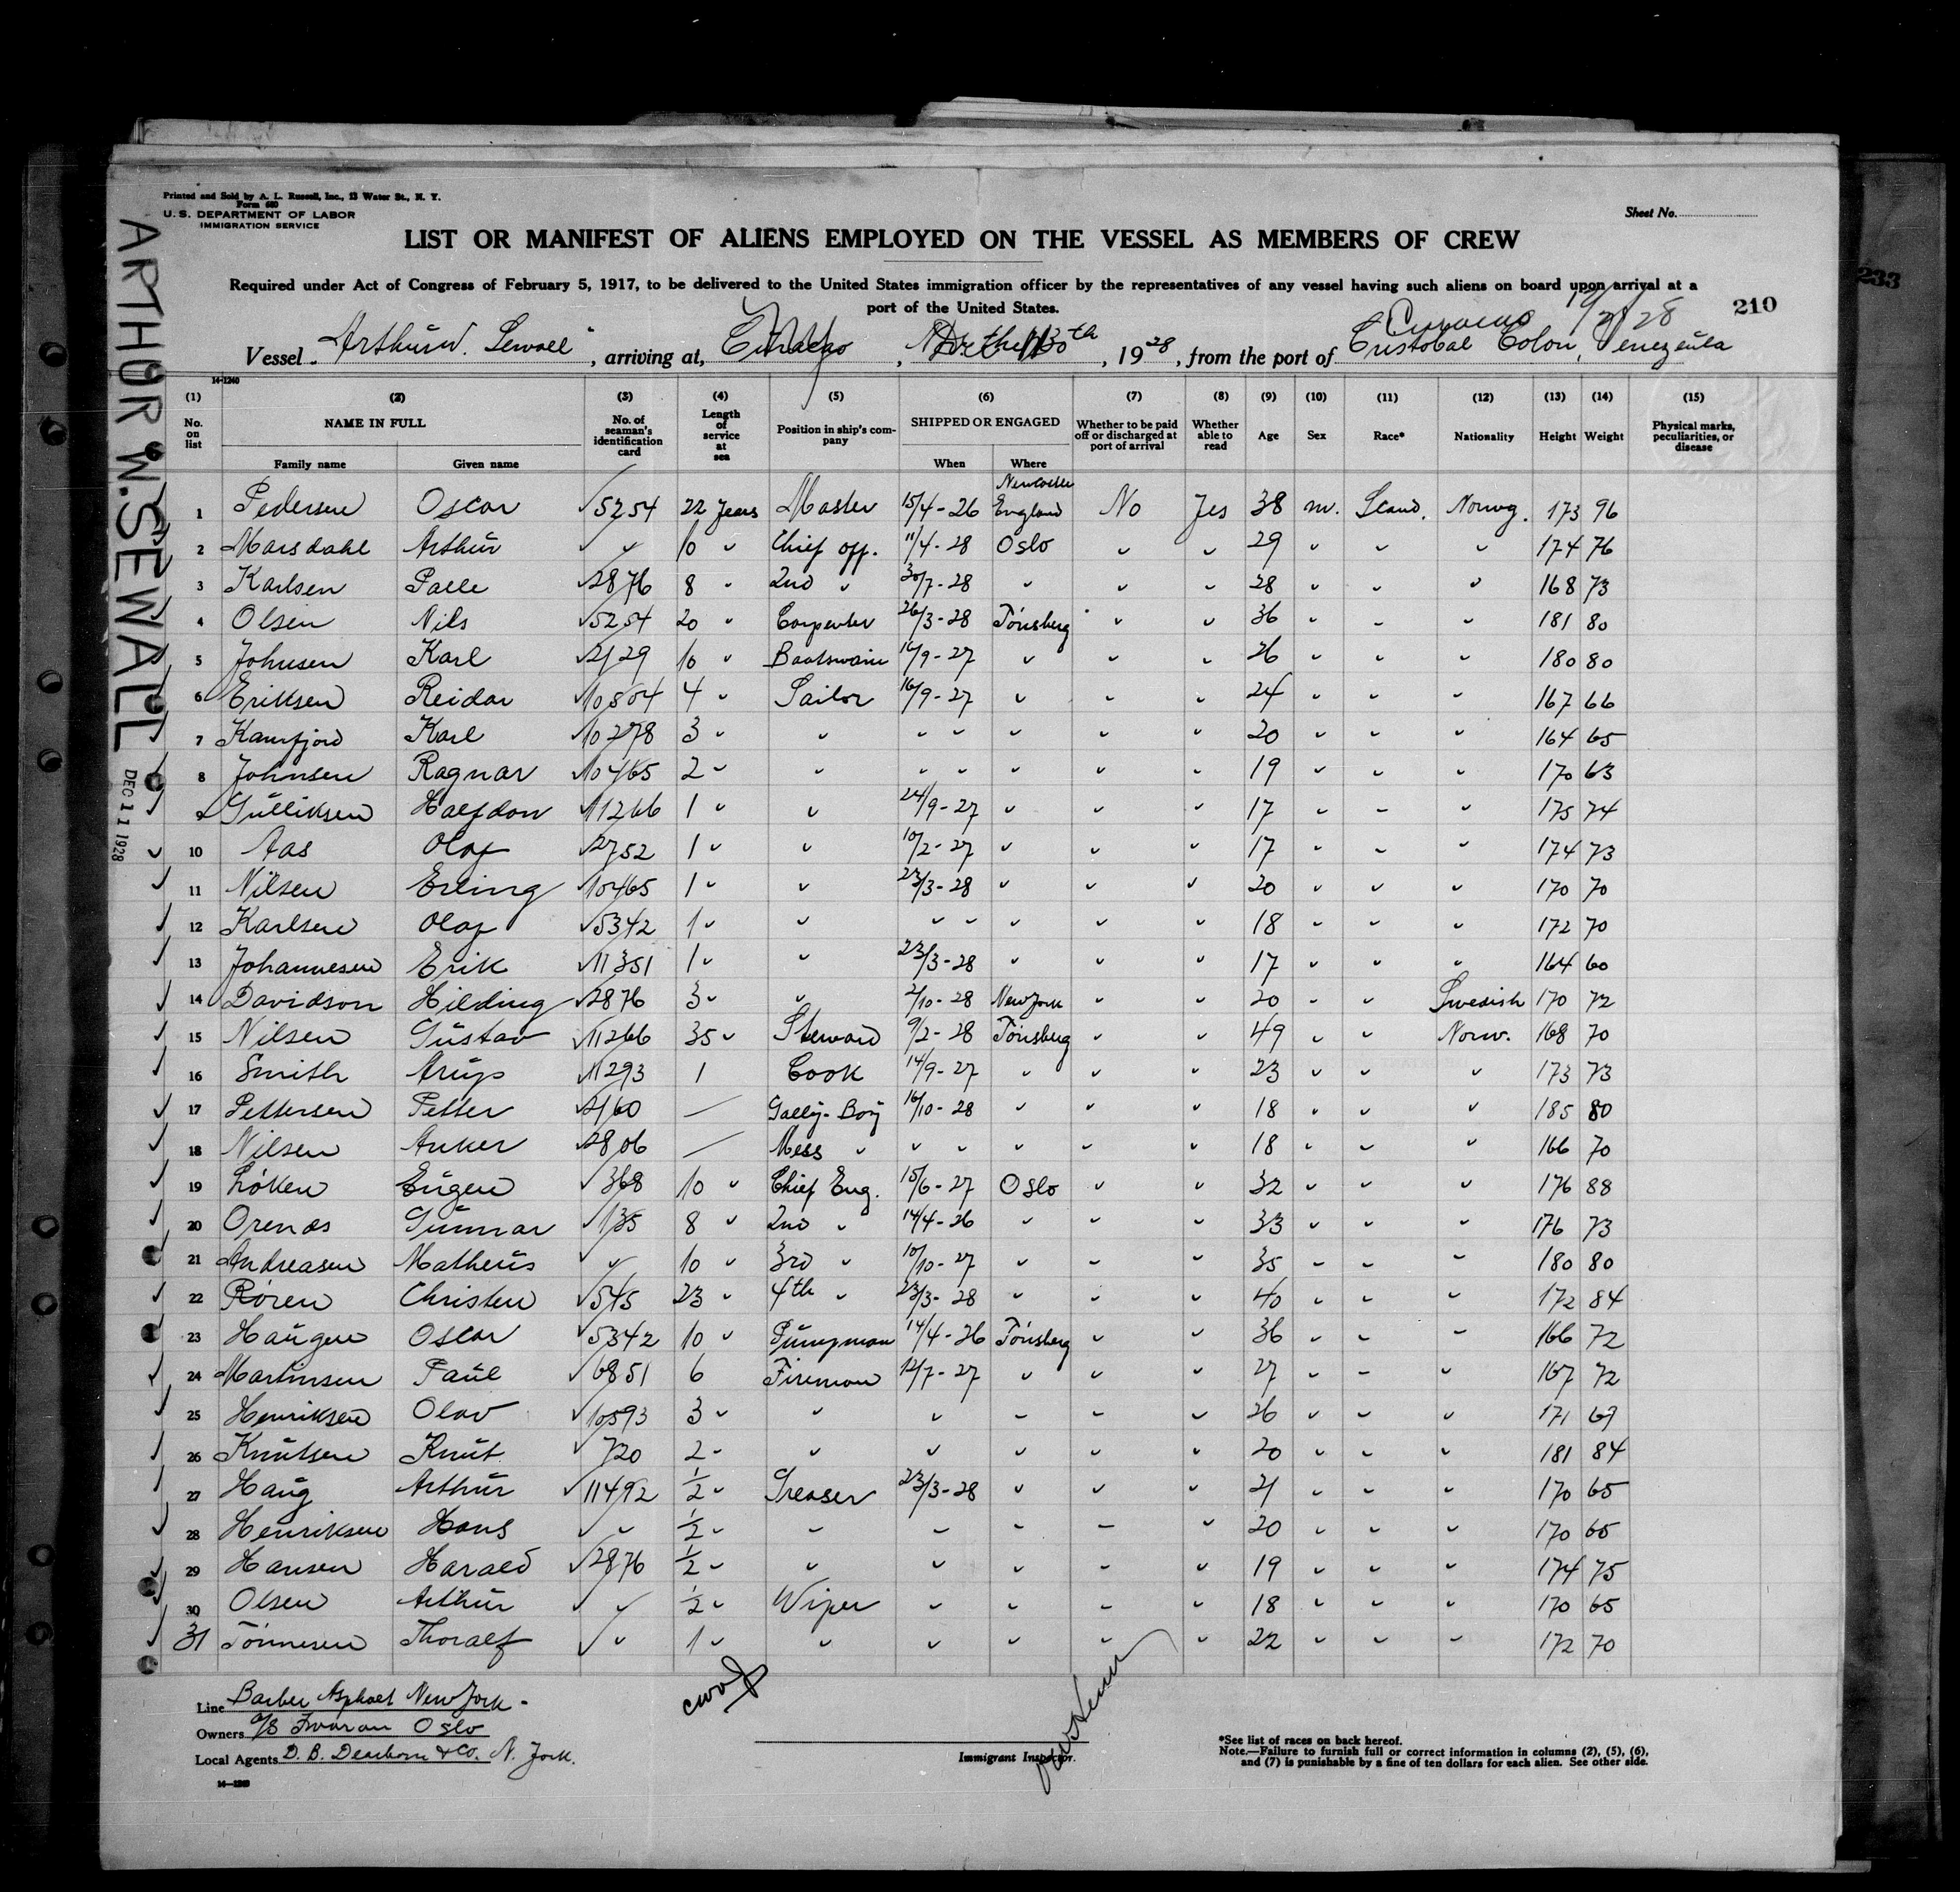 Printed and Sold by A. L. Russell, Inc., 13 Water St., N. Y.
Form 680
U. S. DEPARTMENT OF LABOR
IMMIGRATION SERVICE
Sheet No.
LIST OR MANIFEST OF ALIENS EMPLOYED ON THE VESSEL AS MEMBERS OF CREW
Required under Act of Congress of February 5, 1917, to be delivered to the United States immigration officer by the representatives of any vessel having such aliens on board upon arrival at a
port of the United States.
210
233
Vessel Arthur W. Sewall, arriving at, 1928, from the port of Cristobal Colon, Venezuela
Curacao
ARTHUR W. SEWALL
DEC 11 1928
14-1240
(1) (2) (3) (4) (5) (6) (7) (8) (9) (10) (11) (12) (13) (14) (15)
No. on list NAME IN FULL No. of seaman's identification card Length of service at sea Position in ship's company SHIPPED OR ENGAGED Whether to be paid off or discharged at port of arrival Whether able to read Age Sex Race* Nationality Height Weight Physical marks, peculiarities, or disease
Family name Given name When Where
1 Pedersen Oscar 5254 22 Years Master 15/4-26 Newcastle England No Yes 38 m. Scand. Norwg. 173 96
2 Marsdahl Arthur " 10 " Chief off. 11/4-28 Oslo " " 29 " " " 174 76
3 Karlsen Palle 2876 8 " 2nd " 30/7-28 " " " 28 " " " 168 73
4 Olsen Nils 5254 20 " Carpenter 26/3-28 Tönsberg " " 36 " " " 181 80
5 Johnsen Karl 2129 10 " Boatswain 16/9-27 " " " 26 " " " 180 80
6 Eriksen Reidar 10504 4 " Sailor 16/9-27 " " " 24 " " " 167 66
7 Kamfjord Karl 10278 3 " " " " " " " 20 " " " 164 65
8 Johnsen Ragnar 10465 2 " " " " " " " 19 " " " 170 63
9 Gulliksen Halfdan 11266 1 " " 24/9-27 " " " 17 " " " 175 74
10 Aas Olaf 2752 1 " " 10/2-27 " " " 17 " " " 174 73
11 Nilsen Erling 10465 1 " " 23/3-28 " " " 20 " " " 170 70
12 Karlsen Olaf 5342 1 " " " " " " " 18 " " " 172 70
13 Johannesen Erik 11351 1 " " 23/3-28 " " " 17 " " " 164 60
14 Davidson Hilding 2876 3 " " 2/10-28 New York " " 20 " " Swedish 170 72
15 Nilsen Gustav 11266 35 " Steward 9/2-28 Tönsberg " " 49 " " Norw. 168 70
16 Smith 11293 1 Cook 14/9-27 " " " 23 " " " 173 73
17 Pettersen Petter 2160 — Gally-Boy 16/10-28 " " " 18 " " " 185 80
18 Nilsen Anker 2806 — Mess " " " " " " 18 " " " 166 70
19 Löken Eugen 368 10 " Chief Eng. 15/6-27 Oslo " " 32 " " " 176 88
20 Orenas Gunnar 135 8 " 2nd " 14/4-26 " " " 33 " " " 176 73
21 Andreasen Matheus " 10 " 3rd " 10/10-27 " " " 35 " " " 180 80
22 Rören Christen 545 23 " 4th " 23/3-28 " " " 40 " " " 172 84
23 Haugen Oscar 5342 10 " Pumpman 14/4-26 Tönsberg " " 36 " " " 166 72
24 Martinsen Paul 6851 6 Fireman 12/7-27 " " " 27 " " " 167 72
25 Henriksen Olav 10593 3 " " " " " " 26 " " " 171 69
26 Knutsen Knut 720 2 " " " " " " 20 " " " 181 84
27 Haug Arthur 11492 1/2 " Greaser 23/3-28 " " " 21 " " " 170 65
28 Henriksen Hans " 1/2 " " " " " " 20 " " " 170 65
29 Hansen Harald 2876 1/2 " " " " " " 19 " " " 174 75
30 Olsen Arthur " 1/2 " Wiper " " " " 18 " " " 170 65
31 Tönnesen Thoralf " 1 " " " " " " 22 " " " 172 70
Line Barber Asphalt New York
Owners A/S Ivaran Oslo
Local Agents D. B. Dearborn & Co. N. York.
14-1240
Immigrant Inspector.
*See list of races on back hereof.
Note.—Failure to furnish full or correct information in columns (2), (5), (6),
and (7) is punishable by a fine of ten dollars for each alien. See other side.